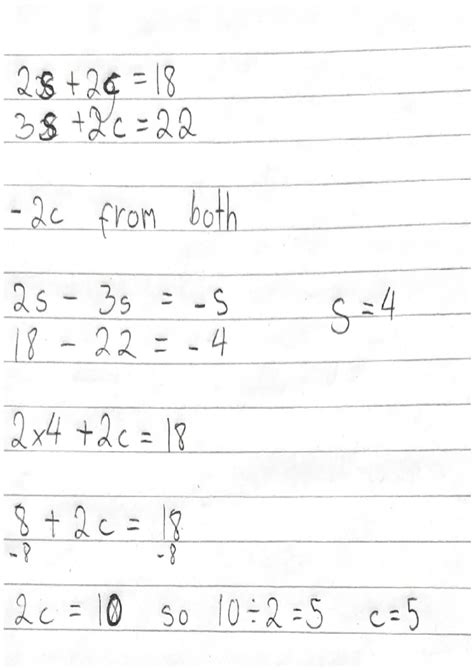 2s + 2c = 18
3s + 2c = 22
-2c from both
2s - 3s = -s
18 - 22 = -4
s = 4
2×4 + 2c = 18
8 + 2c = 18
-8 -8
2c = 10 so 10÷2=5 c=5